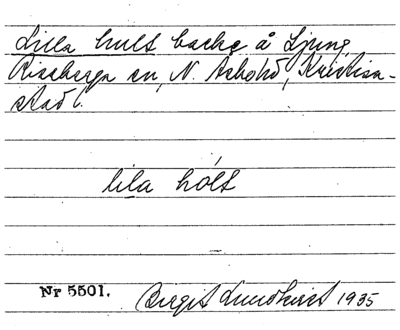 Lilla hult backe å Ljung,
Riseberga sn, N. Åsbohd, Kristian-
stad l.
lila hólt
Nr 5501. Birgit Lundkvist 1935